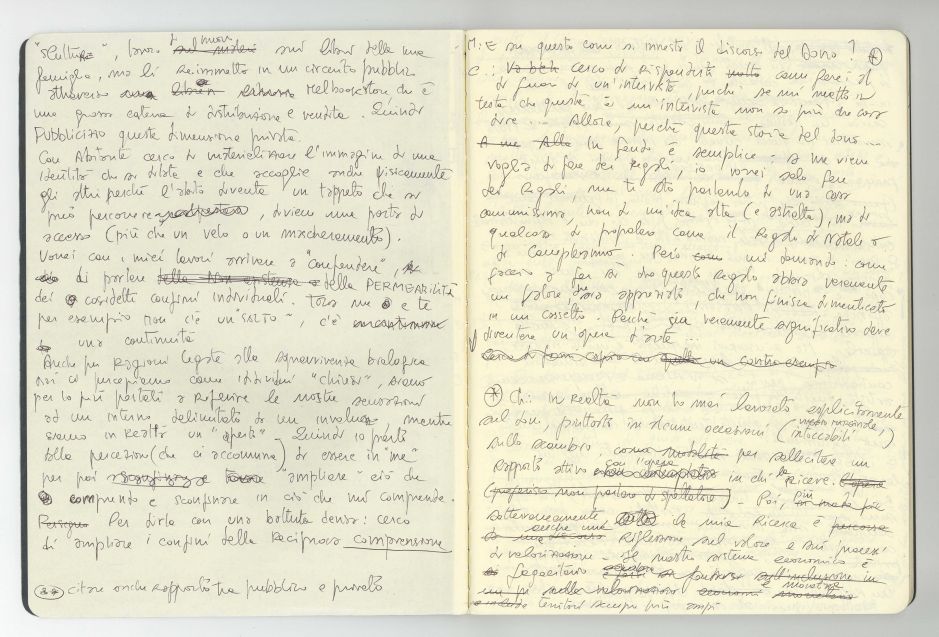 "sculture", lavoro sui muri sui libri della mia
famiglia, ma li reimmetto in un circuito pubblico
attraverso Melbookstore che è
una grossa catena di distribuzione e vendita. Quindi
PUBBLICIZZO questa dimensione privata.
Con Abitante cerco di materializzare l'immagine di una
identità che si dilata e che accoglie anche fisicamente
gli altri perché l'abito diventa un tappeto che si
può percorrere, diviene una porta di
accesso (più che un velo o un mascheramento).
Vorrei con i miei lavori arrivare a "confondere",
di parlare della PERMEABILITÀ
dei cosidetti confini individuali. Tra me e te
per esempio non c'è un "SALTO", c'è
una continuità
Anche per ragioni legate alla sopravvivenza biologica
noi ci percepiamo come individui "chiusi", siamo
per lo più portati a riferire le nostre sensazioni
ad un interno delimitato da un involucro, mentre
siamo in realtà "aperti". Quindi io parto
dalla percezione (che ci accomuna) di essere in "me"
per poi "ampliare" ciò che
comprendo e sconfinare in ciò che mi comprende.
Per dirlo con una battuta densa: cerco
di ampliare i confini della reciproca comprensione
citare anche rapporto tra pubblico e privato
M: E su questo come si innesta il discorso del Dono?
C.: Va beh cerco di risponderti come farei al
di fuori di un'intervista, perché se mi metto in
testa che questa è un'intervista non so più che cosa
dire... Allora, perché questa storia del dono...
In fondo è semplice: a me viene
voglia di fare dei regali, io vorrei solo fare
dei regali, ma ti sto parlando di una cosa
comunissima, non di un'idea alta (e astratta), ma di
qualcosa di popolare come il regalo di Natale o
di compleanno. Però mi domando come
faccio a far sì che questo regalo abbia veramente
un valore, sia apprezzato, che non finisca dimenticato
in un cassetto. Perché sia veramente significativo deve
diventare un'opera d'arte...
Cerco di farmi capire con un contro esempio
Ch: In realtà non ho mai lavorato esplicitamente
sul dono, piuttosto in alcune occasioni (
intoccabili)
sullo scambio, per sollecitare un
rapporto attivo con l'opera in chi la riceve.
(preferisco non parlare di spettatore). Poi, più
sotterraneamente la mia ricerca è
anche una riflessione sul valore e sui processi
di valorizzazione. Il nostro sistema economico è
fagocitario
territori sempre più ampi